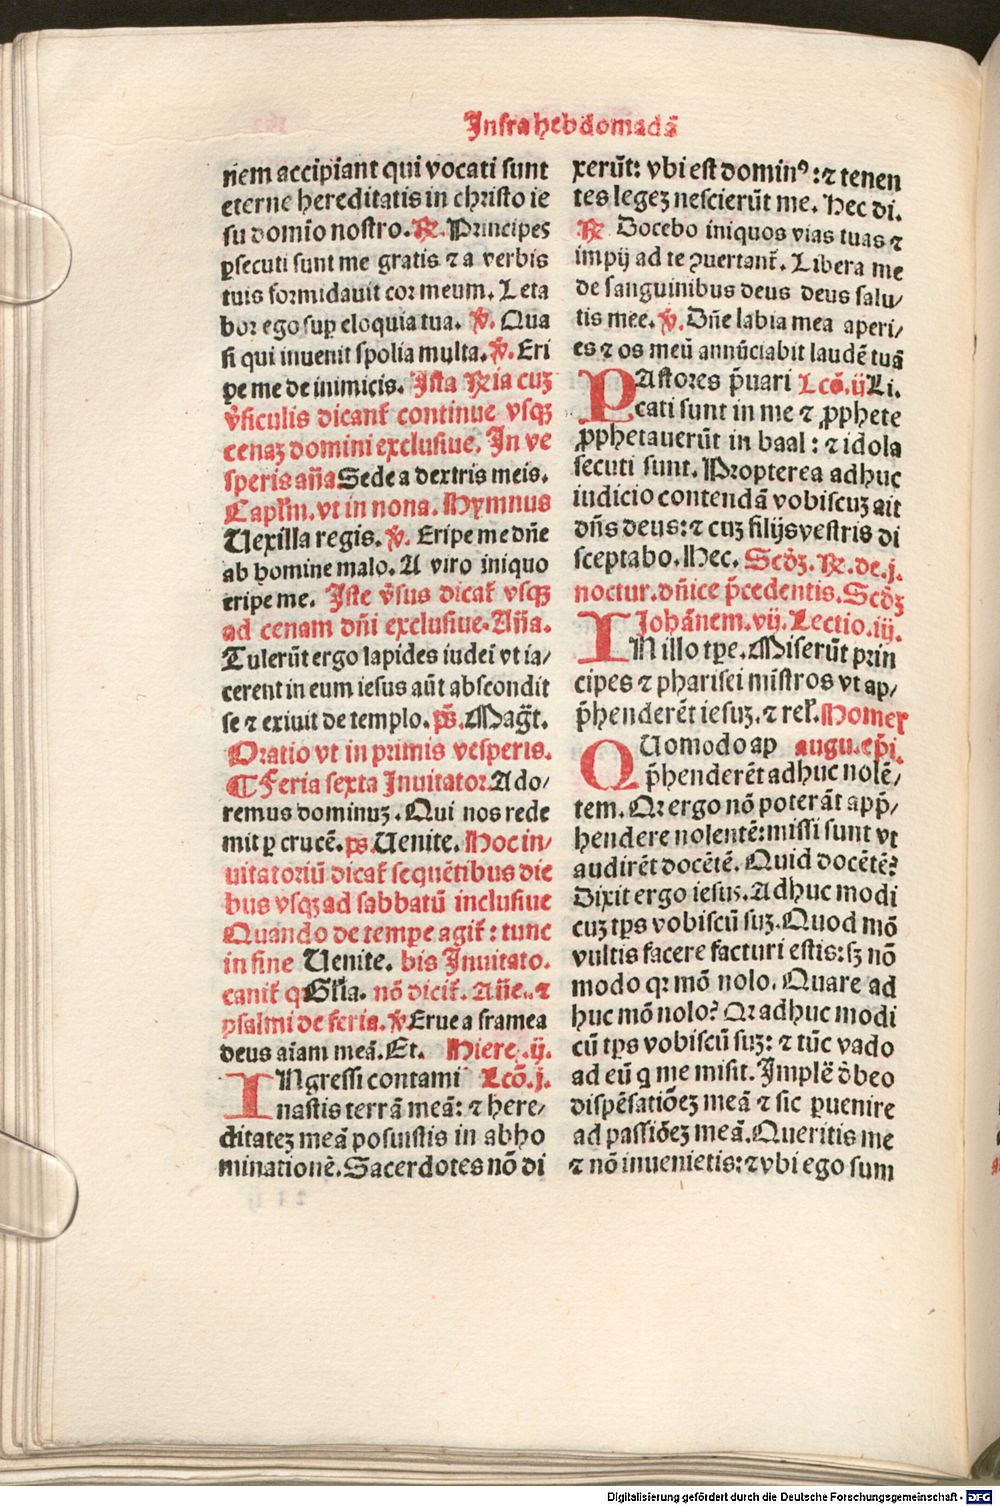 Infra hebdomadã
nem accipiant qui vocati sunt
eterne hereditatis in christo ie
su domĩo nostro. ℟. Principes
ꝑsecuti sunt me gratis ⁊ a verbis
tuis formidauit cor meum. Leta
bor ego suꝑ eloquia tua. ℣. Qua
si qui inuenit spolia multa. ℣. Eri
pe me de inimicis. Ista ℟ia cuꝫ
v̾siculis dicant᷑ continue vsqꝫ
cenaꝫ domini exclusiue. In ve
speris añaSede a dextris meis.
Caplm̃. vt in nona. Hymnus
Uexilla regis. ℣. Eripe me dñe
ab homine malo. A viro iniquo
eripe me. Iste v̾sus dicat᷑ vsqꝫ
ad cenam dñi exclusiue. Aña.
Tulerũt ergo lapides iudei vt ia/
cerent in eum iesus aũt abscondit
se ⁊ exiuit de templo. ps̃. Mag̃t.
Oratio vt in primis vesperis.
¶ Feria sexta Inuitator.Ado/
remus dominuꝫ. Qui nos rede
mit ꝑ crucẽ. ps. Uenite. Hoc in/
uitatoriũ dicat᷑ sequẽtibus die
bus vsqꝫ ad sabbatũ inclusiue
Quando de tempe agit᷑ : tunc
in fine Uenite. bis Inuitato.
canit᷑ qꝛ Glĩa. nõ dicit᷑. Añe. ⁊
psalmi de feria. ℣ Erue a framea
deus aĩam meã. Et. Hiere. ij.
INgressi contami Lcõ. j.
nastis terrã meã: ⁊ here/
ditateꝫ meã posuistis in abho
minationẽ. Sacerdotes nõ di
xerũt: vbi est dominꝰ : ⁊ tenen
tes legeꝫ nescierũt me. Hec di.
℟ Docebo iniquos vias tuas ⁊
impij ad te ꝯuertant᷑. Libera me
de sanguinibus deus deus salu/
tis mee. ℣. Dñe labia mea aperi/
es ⁊ os meũ annũciabit laudẽ tuã
PAstores p̃uari Lcõ. ijLi.
cati sunt in me ⁊ ꝓphete
ꝓphetauerũt in baal : ⁊ idola
secuti sunt. Propterea adhuc
iudicio contendã vobiscuꝫ ait
dñs deus: ⁊ cuꝫ filijs vestris di
sceptabo. Hec. Scd̾ꝫ. ℟. de. j.
noctur. dñice p̃cedentis. Scd̾ꝫ
Iohãnem. vij. Lectio. iij.
IN illo tpe. Miserũt prin
cipes ⁊ pharisei mĩstros vt ap/
p̃henderẽt iesuꝫ. ⁊ rel᷑. Homel᷑
QUomodo ap augu. ep̃i.
p̃henderẽt adhuc nolẽ/
tem. Qꝛ ergo nõ poterãt app̃/
hendere nolentẽ: missi sunt vt
audirẽt docẽtẽ. Quid docẽtẽ?
Dixit ergo iesus. Adhuc modi
cuꝫ tꝑs vobiscũ suꝫ. Quod mõ
vultis facere facturi estis: sꝫ nõ
modo qꝛ mõ nolo. Quare ad
huc mõ nolo? Qꝛ adhuc modi
cũ tꝑs vobiscũ suꝫ: ⁊ tũc vado
ad eũ q me misit. Implẽ d̾beo
dispẽsatiõeꝫ meã ⁊ sic ꝑuenire
ad passiõeꝫ meã. Queritis me
⁊ nõ inuenietis: ⁊ vbi ego sum
Digitalisierung gefördert durch die Deutsche Forschungsgemeinschaft - DFG